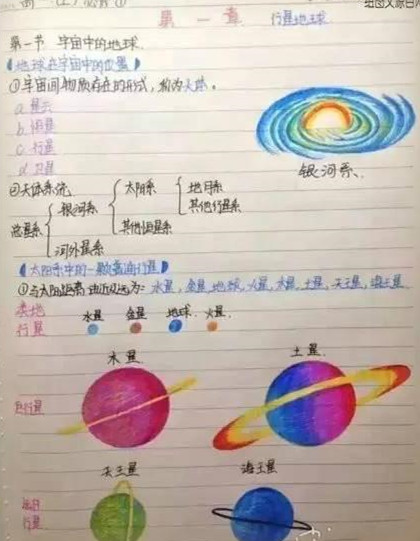 高一(上)必修①
第一章 行星地球
第一节 宇宙中的地球
【地球在宇宙中的位置】
①宇宙间物质存在的形式,称为天体。
a 星云
b 恒星
c 行星
d 卫星
银河系.
②天体系统
总星系 { 银河系 { 太阳系 { 地月系
其他行星系
其他恒星系
河外星系
【太阳系中的一颗普通行星】
①与太阳距离由近及远为: 水星, 金星, 地球, 火星, 木星, 土星, 天王星, 海王星
类地行星
水星 金星 地球 火星
巨行星
木星 土星
远日行星
天王星 海王星